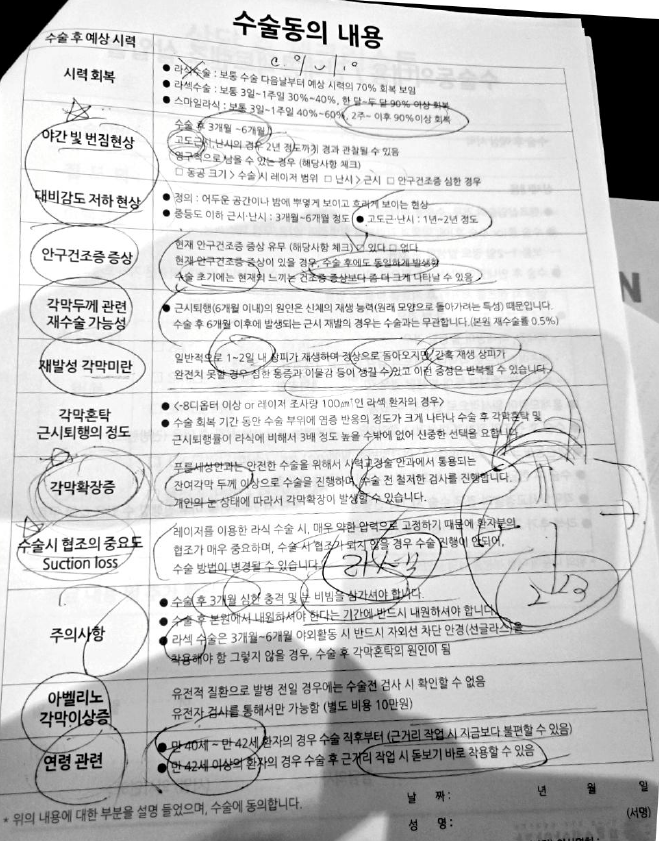 수술동의 내용
수술 후 예상 시력
시력 회복
● 라식수술 : 보통 수술 다음날부터 예상 시력의 70% 회복 보임
● 라섹수술 : 보통 3일~1주일 30%~40%, 한 달~두 달 90% 이상 회복
● 스마일라식 : 보통 3일~1주일 40%~60%, 2주~ 이후 90%이상 회복
야간 빛 번짐현상
수술 후 3개월 ~6개월
고도근시,난시의 경우 2년 정도까지 경과 관찰될 수 있음
영구적으로 남을 수 있는 경우 (해당사항 체크)
□ 동공 크기 > 수술 시 레이저 범위 □ 난시 > 근시 □ 안구건조증 심한 경우
대비감도 저하 현상
● 정의 : 어두운 공간이나 밤에 뿌옇게 보이고 흐리게 보이는 현상
● 중등도 이하 근시·난시 : 3개월~6개월 정도 ● 고도근·난시 : 1년~2년 정도
안구건조증 증상
현재 안구건조증 증상 유무 (해당사항 체크) □ 있다 □ 없다
현재 안구건조증 증상이 있을 경우, 수술 후에도 동일하게 발생함
수술 초기에는 현재의 느끼는 건조증 증상보다 좀 더 크게 나타날 수 있음
각막두께 관련
재수술 가능성
● 근시퇴행(6개월 이내)의 원인은 신체의 재생 능력(원래 모양으로 돌아가려는 특성) 때문입니다.
수술 후 6개월 이후에 발생되는 근시 재발의 경우는 수술과는 무관합니다.(본원 재수술률 0.5%)
재발성 각막미란
일반적으로 1~2일 내 상피가 재생하여 정상으로 돌아오지만, 간혹 재생 상피가
완전치 못할 경우 심한 통증과 이물감 등이 생길 수 있고 이런 증정은 반복될 수 있습니다.
각막혼탁
근시퇴행의 정도
● <-8디옵터 이상 or 레이저 조사량 100㎛인 라섹 환자의 경우>
● 수술 회복 기간 동안 수술 부위에 염증 반응의 정도가 크게 나타나 수술 후 각막혼탁 및
근시퇴행률이 라식에 비해서 3배 정도 높을 수밖에 없어 신중한 선택을 요합니다.
각막확장증
푸른세상안과는 안전한 수술을 위해서 시력교정술 안과에서 통용되는
잔여각막 두께 이상으로 수술을 진행하며, 수술 전 철저한 검사를 진행합니다.
개인의 눈 상태에 따라서 각막확장이 발생할 수 있습니다.
수술시 협조의 중요도
Suction loss
레이저를 이용한 라식 수술 시, 매우 약한 압력으로 고정하기 때문에 환자분의
협조가 매우 중요하며, 수술 시 협조가 되지 않을 경우 수술 진행이 안되어,
수술 방법이 변경될 수 있습니다.
라섹
223
주의사항
● 수술 후 3개월 심한 충격 및 눈 비빔을 삼가셔야 합니다.
● 수술 후 본원에서 내원하셔야 한다는 기간에 반드시 내원하셔야 합니다.
● 라섹 수술은 3개월~6개월 야외활동 시 반드시 자외선 차단 안경(선글라스)을
착용해야 함 그렇지 않을 경우, 수술 후 각막혼탁의 원인이 됨
아벨리노
각막이상증
유전적 질환으로 발병 전일 경우에는 수술전 검사 시 확인할 수 없음
유전자 검사를 통해서만 가능함 (별도 비용 10만원)
연령 관련
● 만 40세 ~ 만 42세 환자의 경우 수술 직후부터 (근거리 작업 시 지금보다 불편할 수 있음)
● 만 42세 이상의 환자의 경우 수술 후 근거리 작업 시 돋보기 바로 착용할 수 있음
* 위의 내용에 대한 부분을 설명 들었으며, 수술에 동의합니다.
날 짜 : 년 월 일
성 명 : (서명)